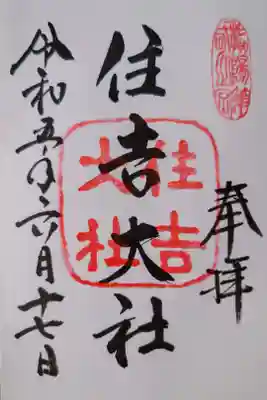 奉拝
住吉大社
住吉大社
令和五年六月十七日